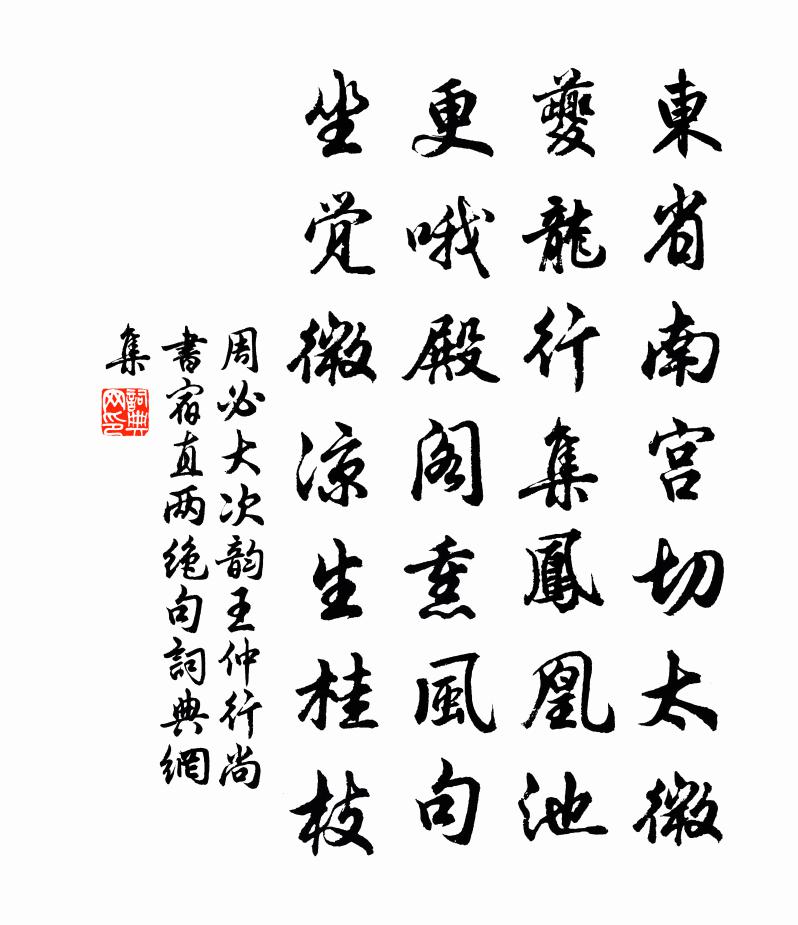 東省南宫切太微
夔龍行集鳳凰池
更哦殿阁熏風句
坐觉微凉生桂枝
周必大次韵王仲行尚
書宿直两绝句詞典網
集
詞典
网印